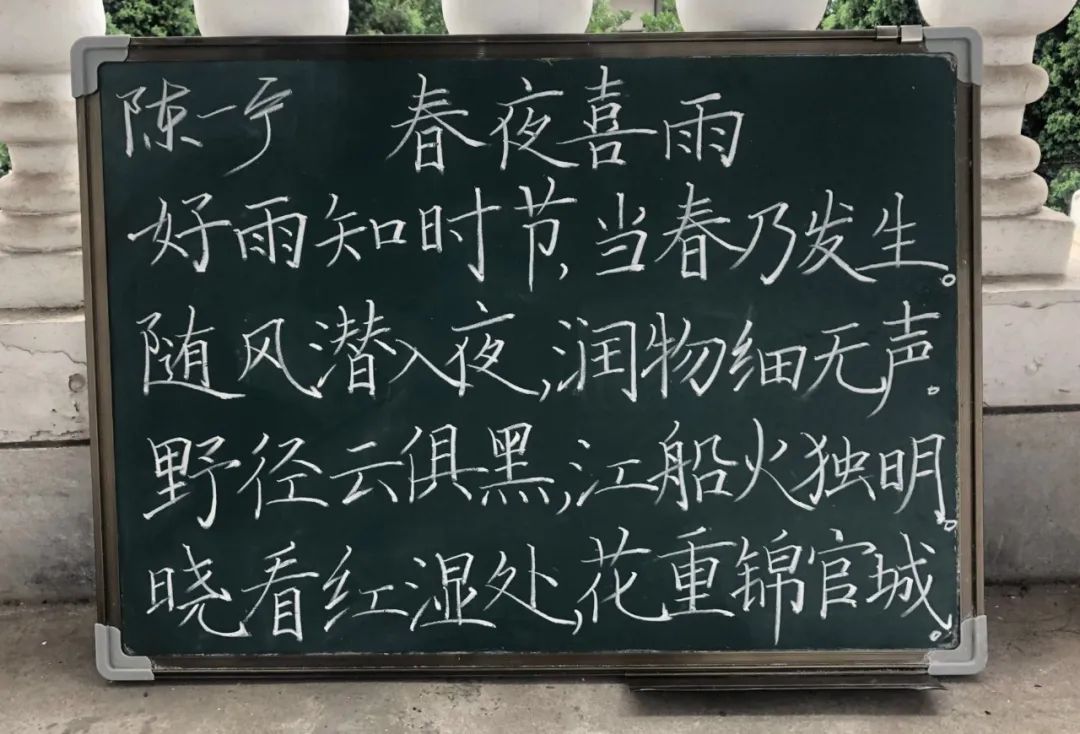 陈一宁 春夜喜雨
好雨知时节,当春乃发生。
随风潜入夜,润物细无声。
野径云俱黑,江船火独明。
晓看红湿处,花重锦官城。